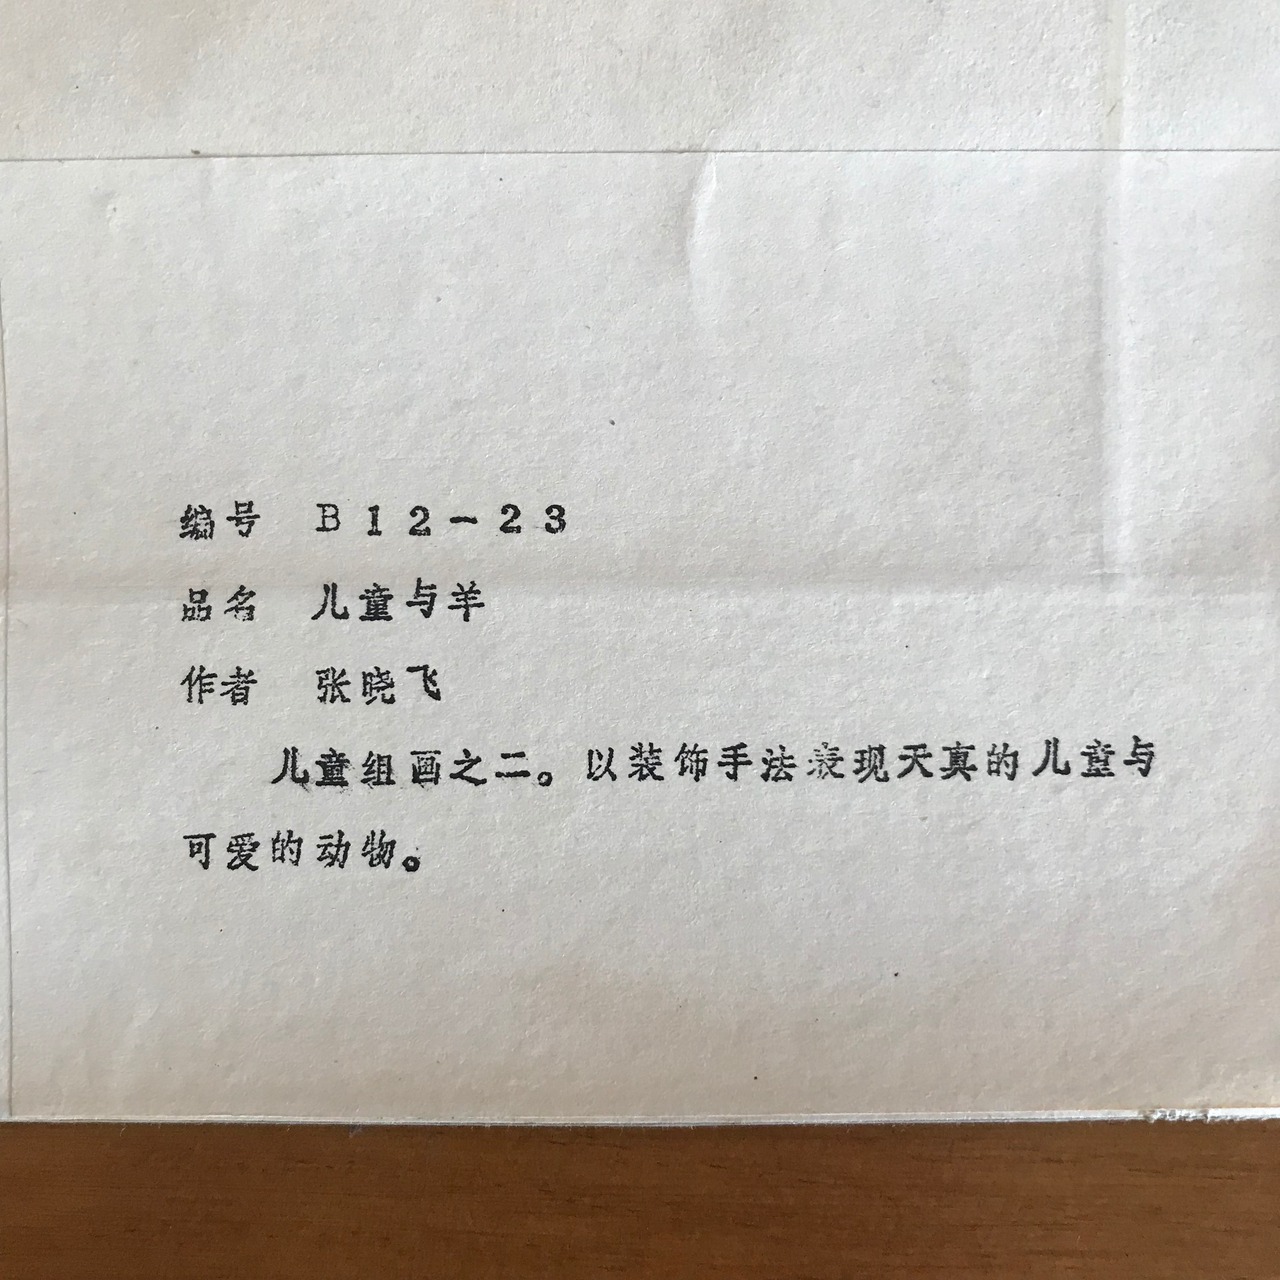 编号 B12-23
品名 儿童与羊
作者 张晓飞
儿童组画之二。以装饰手法表现天真的儿童与
可爱的动物。